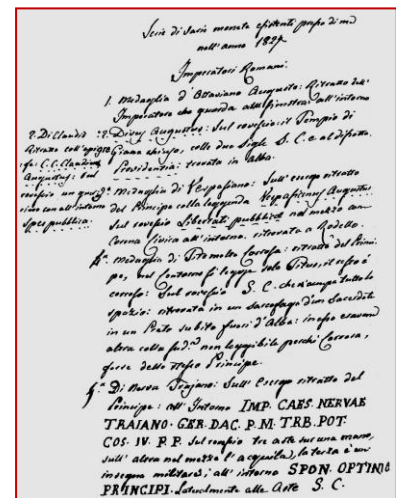 Serie di varie monete esistenti presso di me
nell'anno 1827
Imperatori Romani.
1. Medaglia d'Ottaviano Augusto: Ritratto dell'
Imperatore che guarda alla sinistra: all'intorno
Divus Augustus: Sul rovescio: il Tempio di
Giano chiuso, colle due Sigle S. C. e al disotto.
Providentia: trovata in Alba.
2. Di Claudio
Ritratto coll'epigra
fe: C. C. Claudius
Augustus: Sul
rovescio un
all'intorno
Spes pubblica:
3.ª Medaglia di Vespasiano: Sull'esergo ritratto
del Principe colla leggenda Vespasianus Augustus
Sul rovescio Libertati pubblicae nel mezzo una
Corona Civica all'intorno, ritrovata a Rodello.
4.ª Medaglia di Tito molto Corrosa: ritratto del Princi
pe, nel contorno si legge solo Titus, il resto è
corroso: Sul rovescio S. C. che occupa tutto lo
spazio: ritrovata in un sarcofago d'un Sacerdote
in un Prato subito fuori d'Alba: in esso eravene
altra colla sud.ª non leggibile perchè Corrosa,
forse dello stesso Principe.
5.ª Di Nerva Trajano: Sull'Esergo ritratto del
Principe: all'Intorno IMP. CAES. NERVAE
TRAIANO. GER. DAC. P. M. TRB. POT.
COS. IV. P. P. Sul rovescio tre aste sur una mano,
sull'altra nel mezzo l'acquila, la terza è un
insegna militare: all'intorno SPON. OPTINO
PRINCIPI. Lateralmente alle Aste S. C.